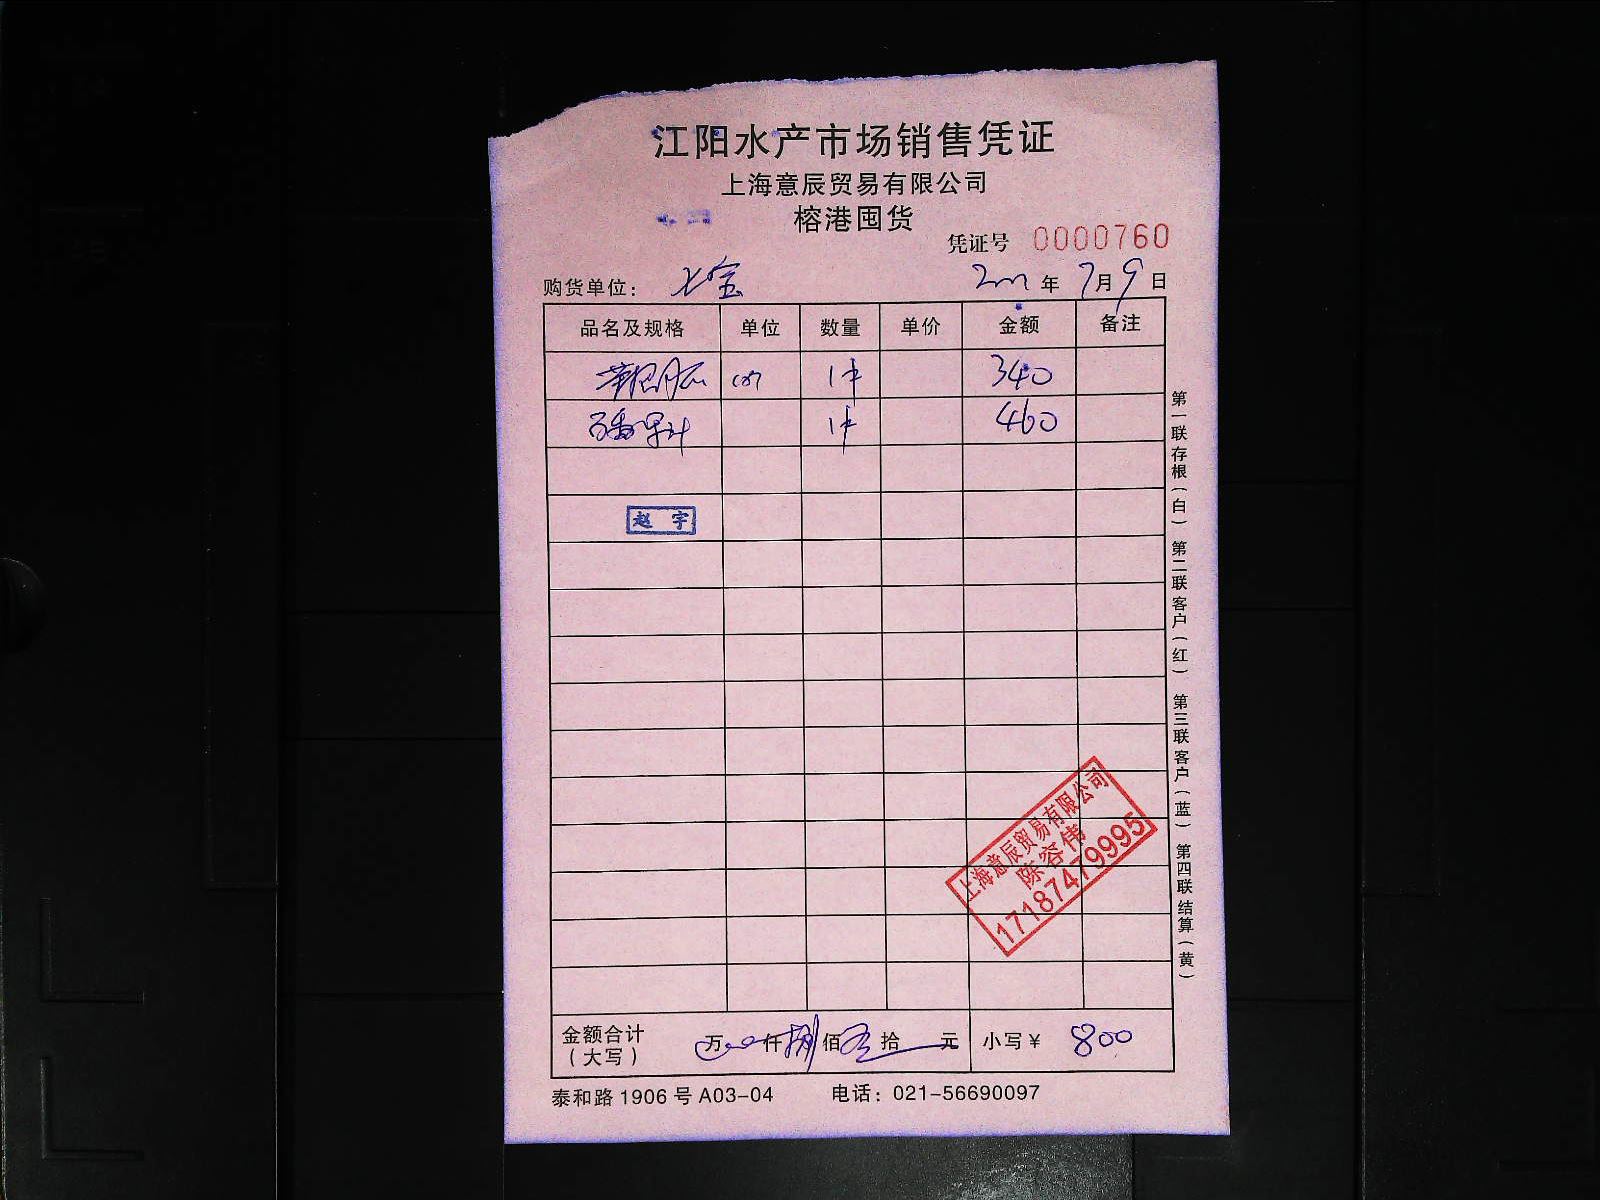 江阳水产市场销售凭证
上海意辰贸易有限公司
榕港囤货
凭证号 0000760
购货单位： 七宝 年 7月9日
品名及规格 单位 数量 单价 金额 备注
1件 340
1件 460
赵 宇
上海意辰贸易有限公司
陈容伟
17187479995
金额合计（大写） 万 仟捌佰 拾 元 小写￥ 800
泰和路1906号A03-04 电话：021-56690097
第一联存根（白） 第二联客户（红） 第三联客户（蓝） 第四联结算（黄）